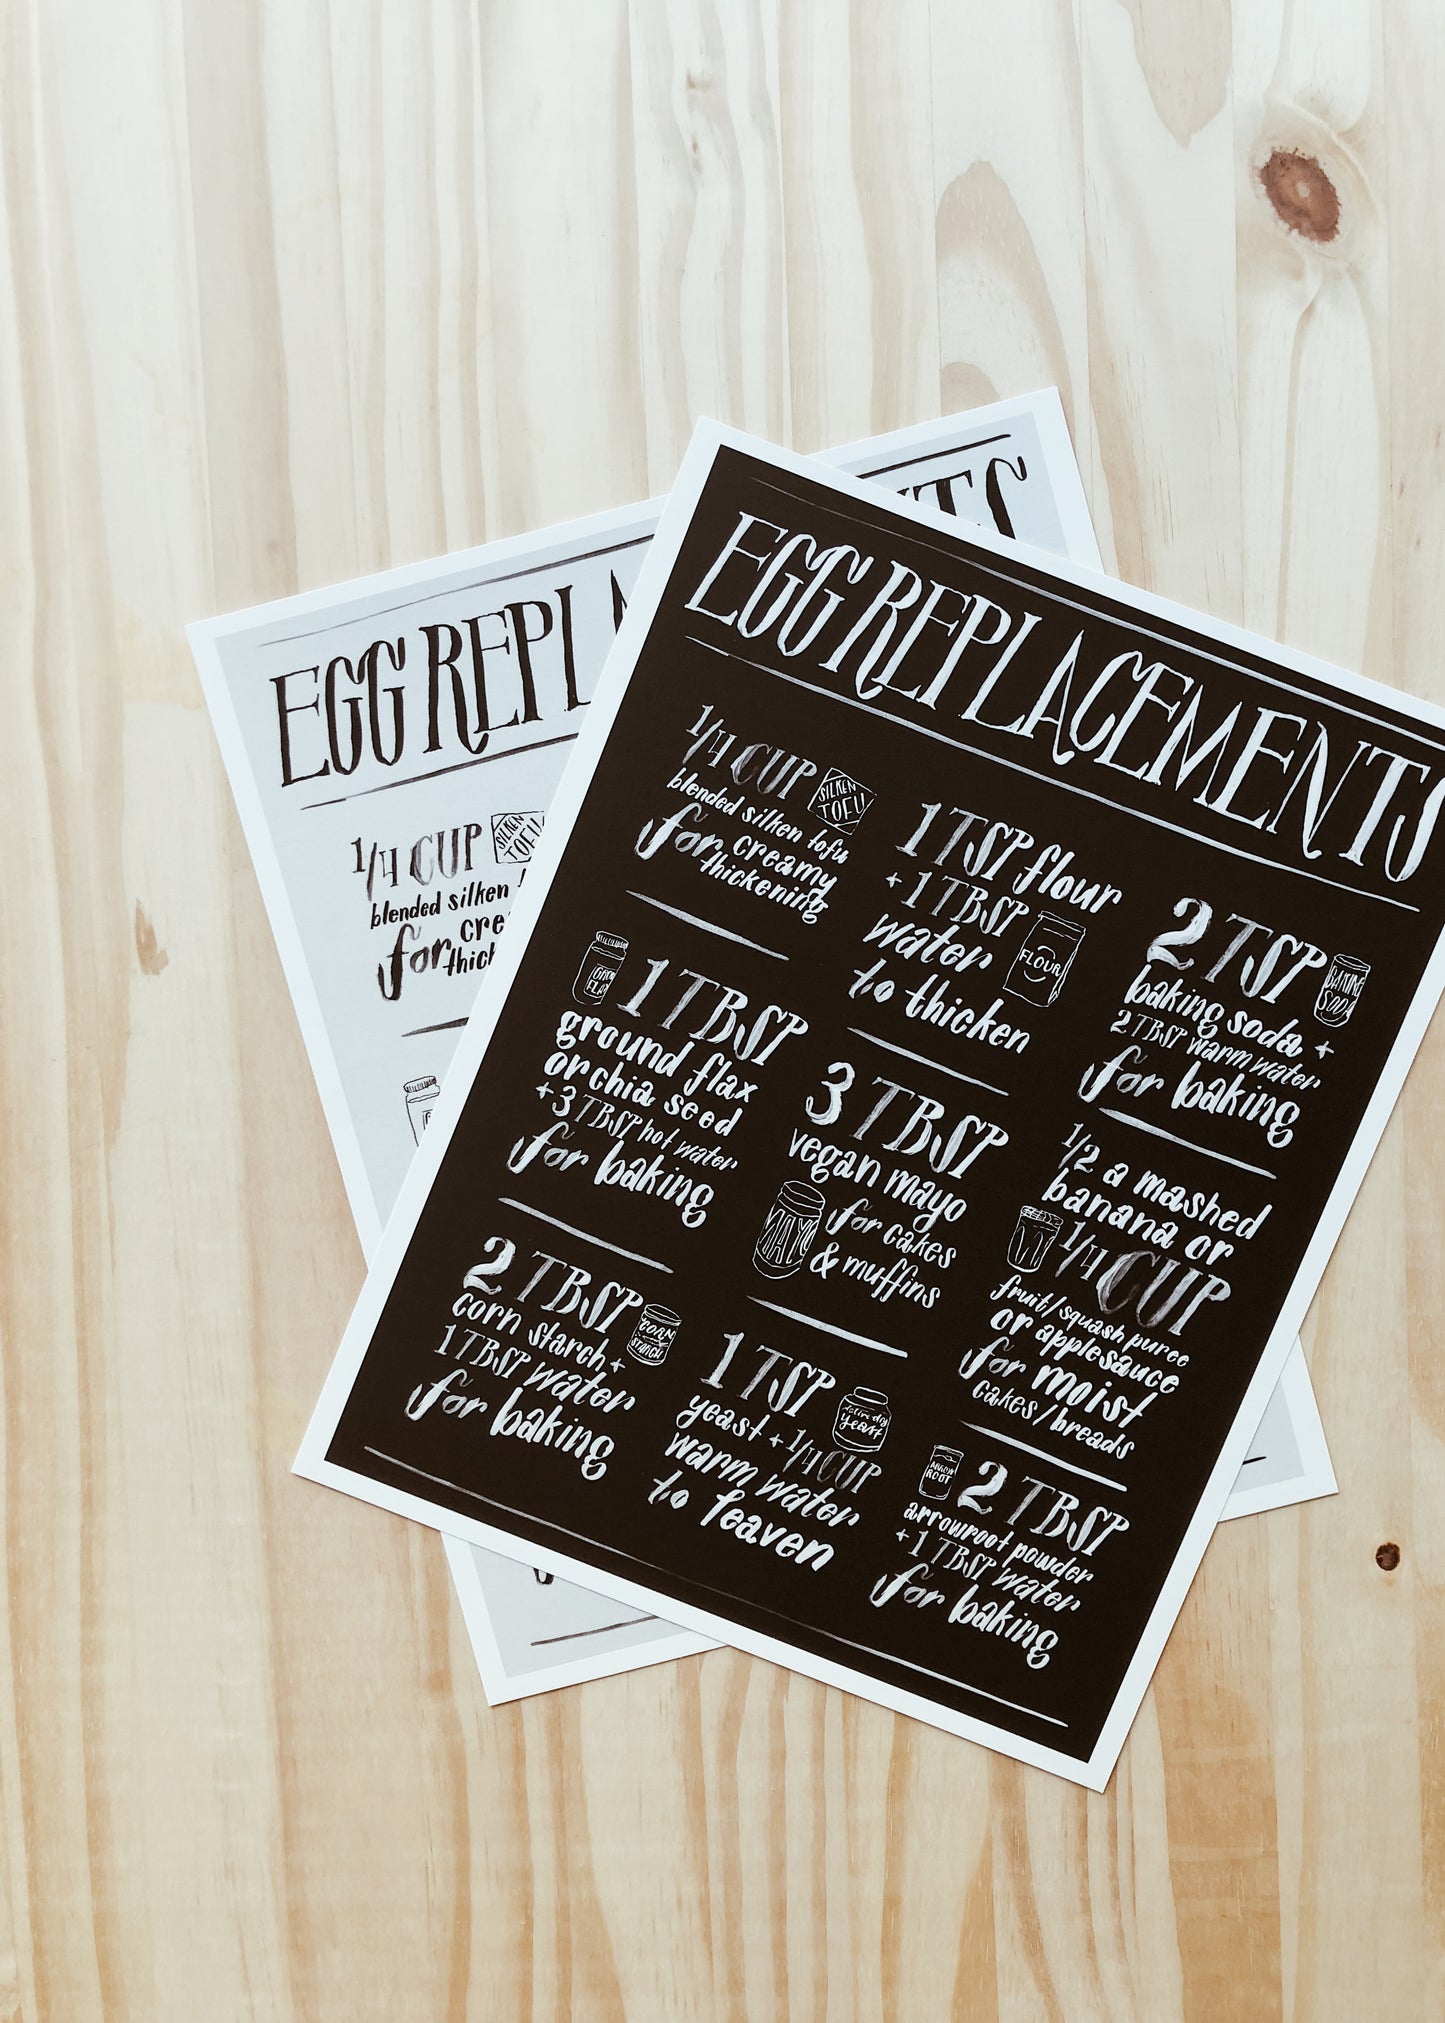 EGG REPLACEMENTS
1/4 CUP
SILKEN
TOFU
blended silken tofu
for creamy
thickening
1 TBSP
ground flax
or chia seed
+ 3 TBSP hot water
for baking
2 TBSP
CORN
STARCH
corn starch +
1 TBSP water
for baking
1 TSP flour
+ 1 TBSP
water
FLOUR
to thicken
3 TBSP
vegan mayo
MAYO
for cakes
& muffins
1 TSP
yeast + 1/4 CUP
yeast
warm water
to leaven
2 TSP
BAKING
SODA
baking soda +
2 TBSP warm water
for baking
1/2 a mashed
banana or
1/4 CUP
fruit/squash puree
or applesauce
for moist
cakes/breads
ARROW
ROOT
2 TBSP
arrowroot powder
+ 1 TBSP water
for baking
EGG REPL
NTS
1/4 CUP
SILKEN
TOFU
blended silken
for cre
thick